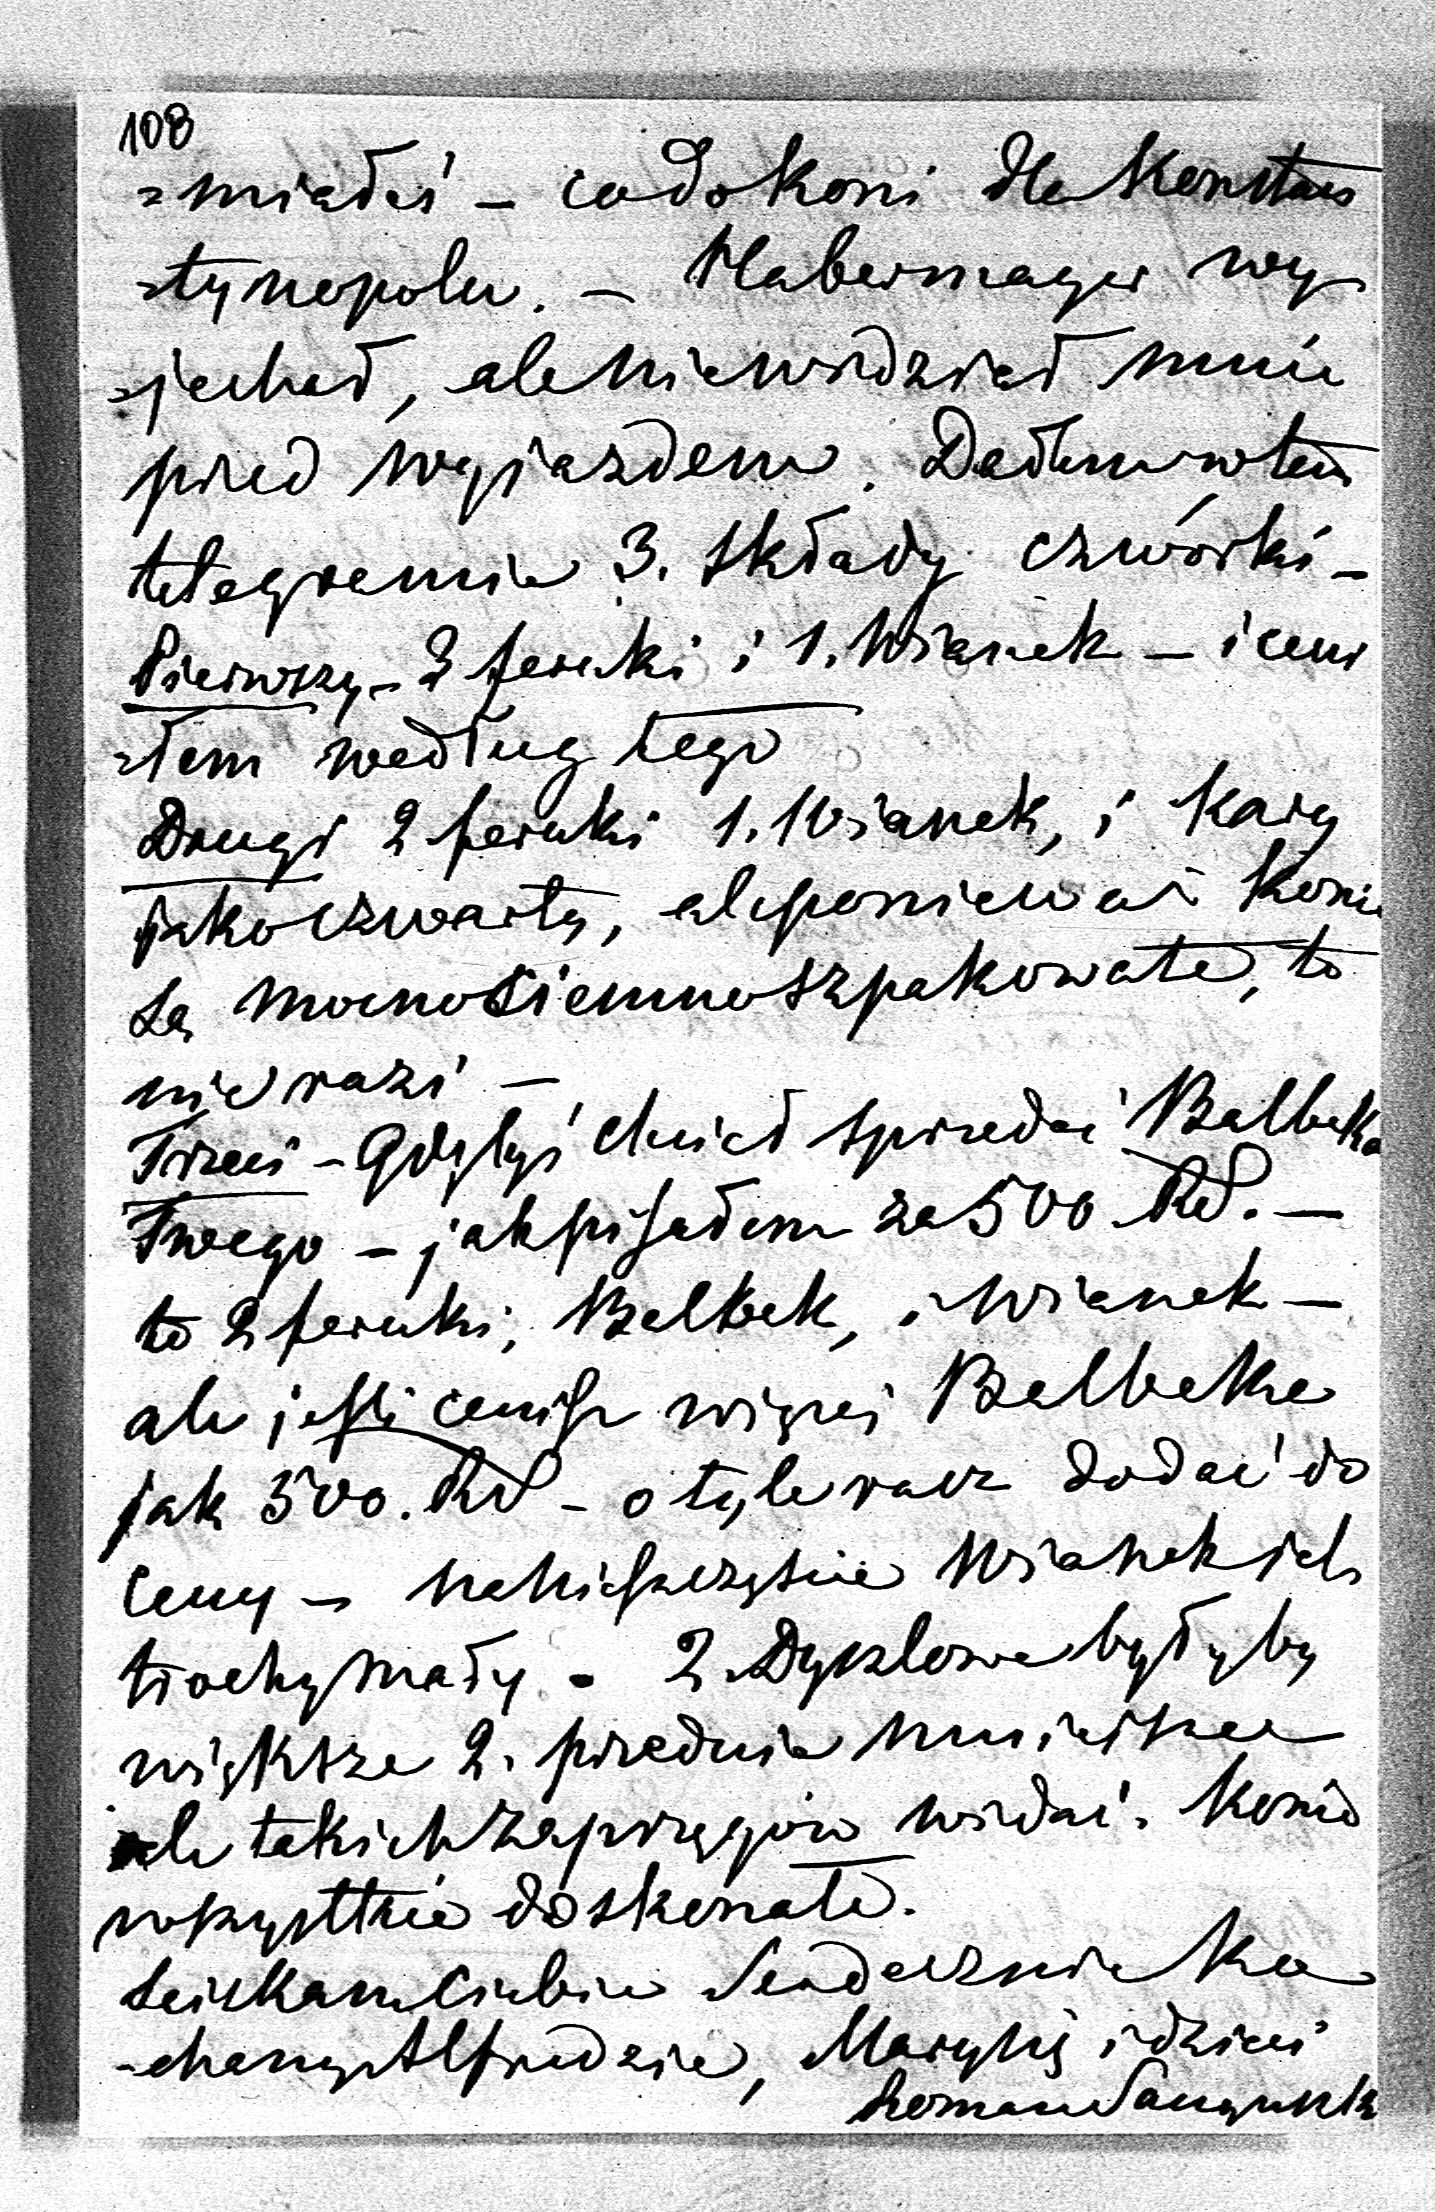 108
=miałeś – co do koni dla Konstan
=tynopolu. – Habermayer wy=
=jechał, ale nie widział mnie
przed wyjazdem. Dałem w tem
telegramie 3. składy czwórki –
Pierwszy – 3 feruki i 1. Wianek – i ceni
=łem według tego
Drugi 2 feruki 1. Wianek, i Kary
jako czwarty, ale ponieważ konie
są mocno ciemnoszpakowate, to
nie razi –
Trzeci – Gdybyś chciał sprzedać Balbeka
Twego – jak pisałem za 500 Rb. –
to 2 feruki, Balbek, i Wianek –
ale jeśli cenisz więcej Balbeka
jak 500. Rb – o tyle racz dodać do
ceny – na nieszczęście Wianek jest
trochę mały. 2. Dyszlowe byłyby
większe 2. przednie mniejsze
ale takich zaprzęgów widać. Konie
wszystkie doskonałe.
Sciskam Ciebie Serdecznie Ko
=chany Alfredzie, Marynię i dzieci
Roman Sanguszko